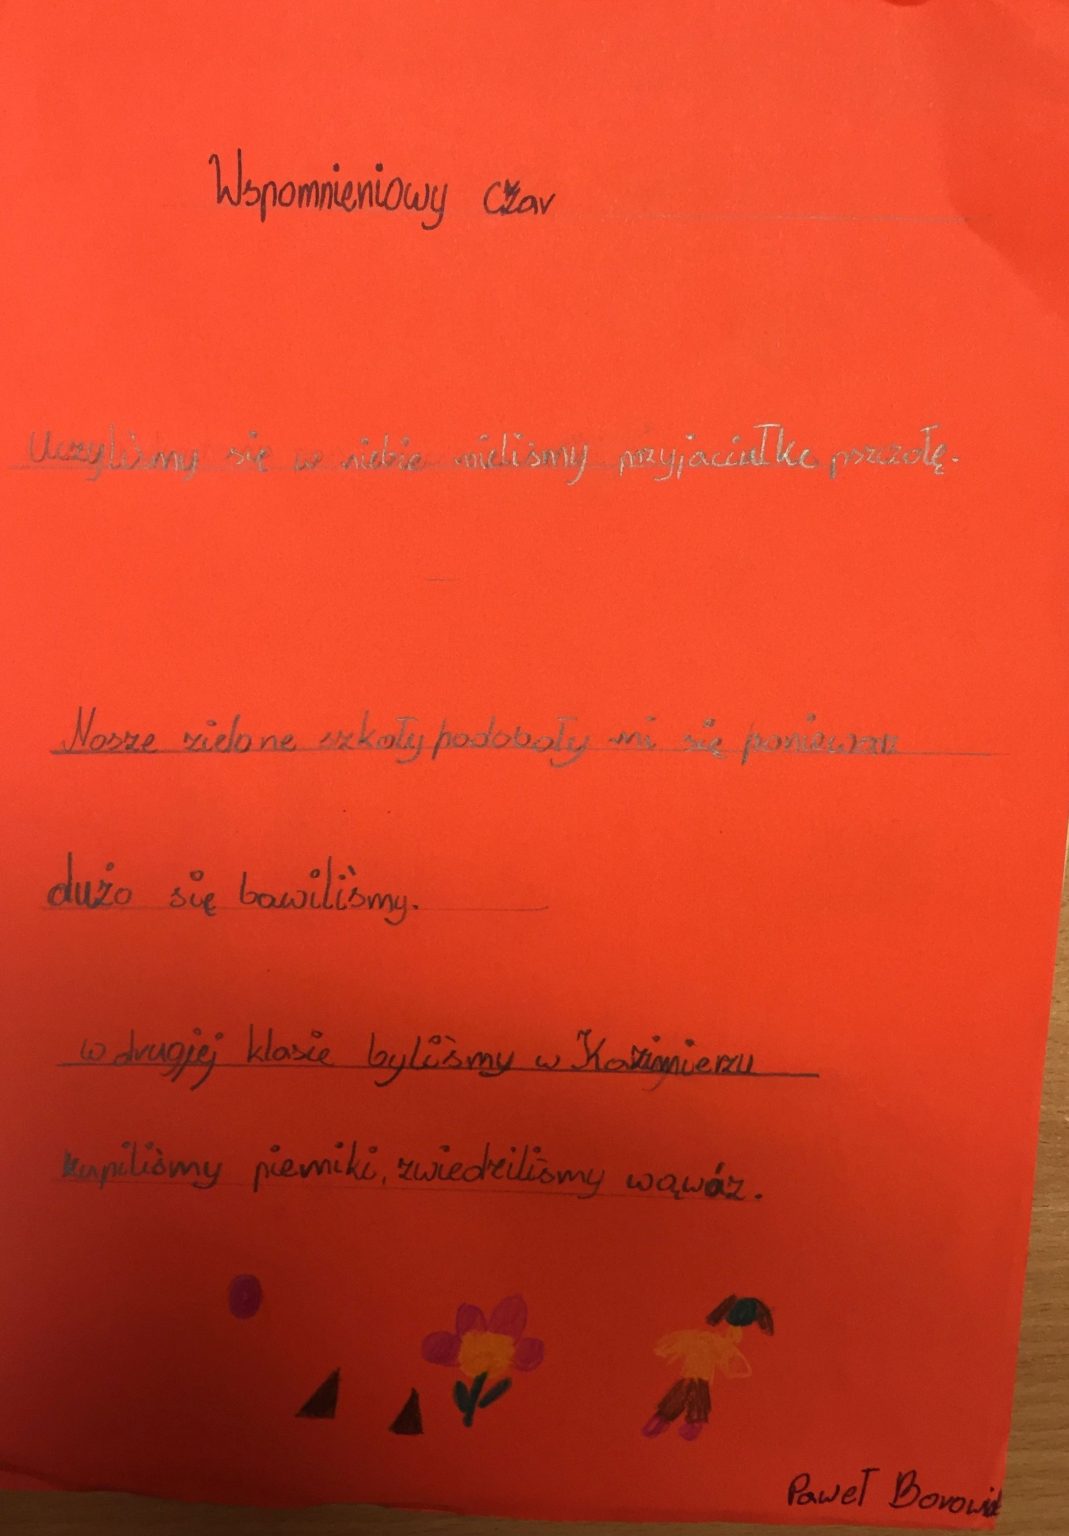 Wspomnieniowy czar
Uczyliśmy się w niebie mieliśmy przyjaciułkę pszczołę.
Nasze zielone szkoły podobały mi się ponieważ
dużo się bawiliśmy.
w drugjej klasie byliśmy w Kazimierzu
kupiliśmy pierniki, zwiedziliśmy wąwóz.
Paweł